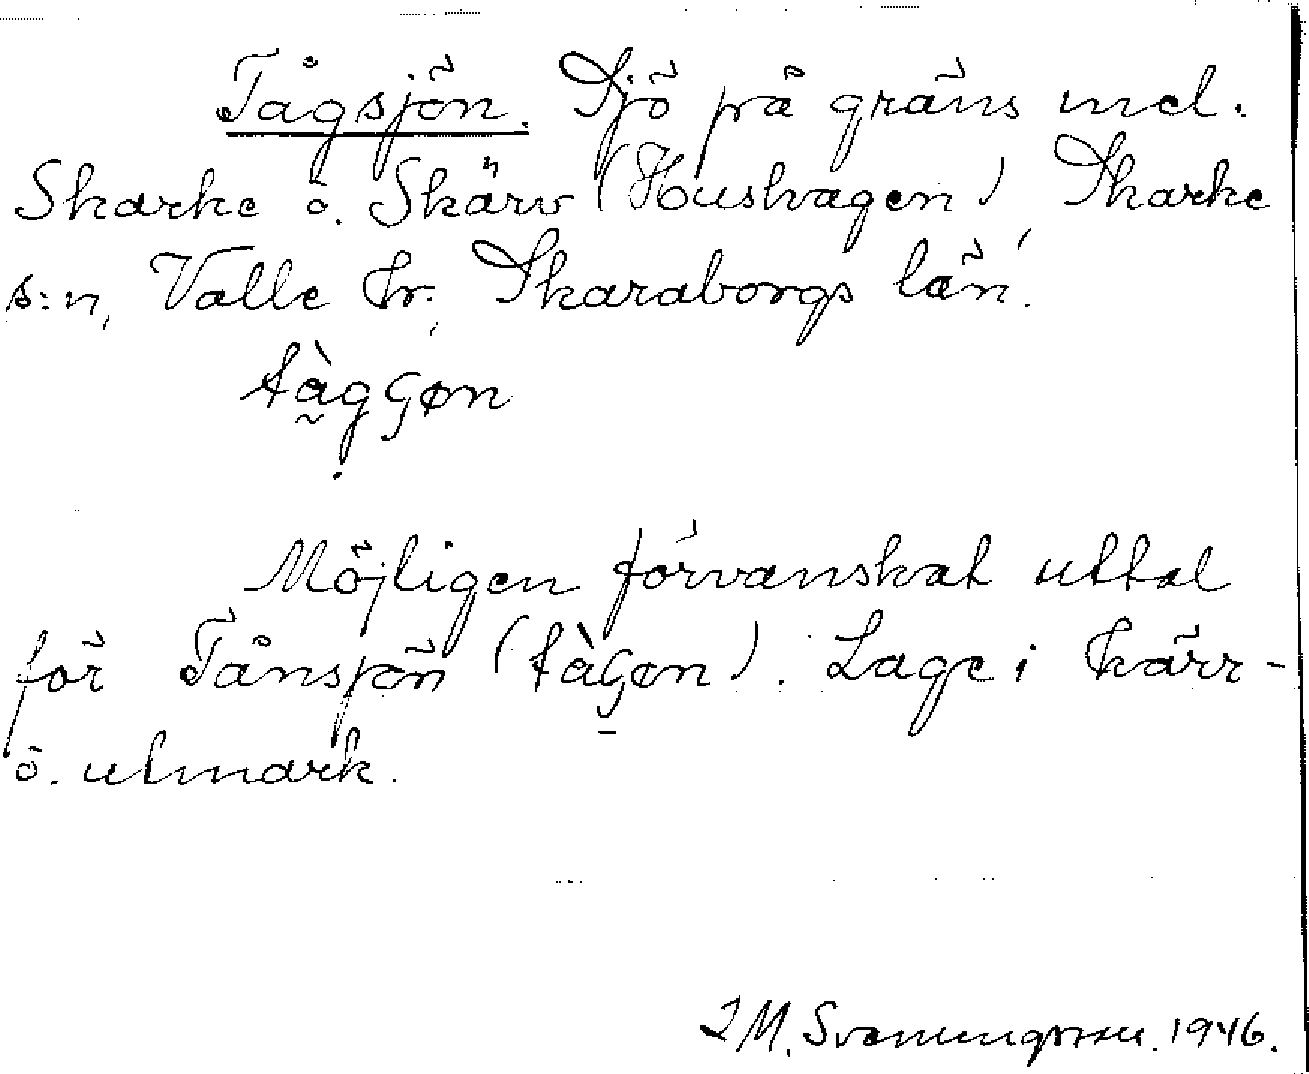 Tågsjön. Sjö på gräns mel.
Skarke o. Skärv (Hushagen) Skarke
s:n, Valle hr. Skaraborgs län.
Möjligen förvanskat uttal
för Tånsjön ( ). Läge i kärr-
o. ulmark.
I M. Svanungsson. 1946.